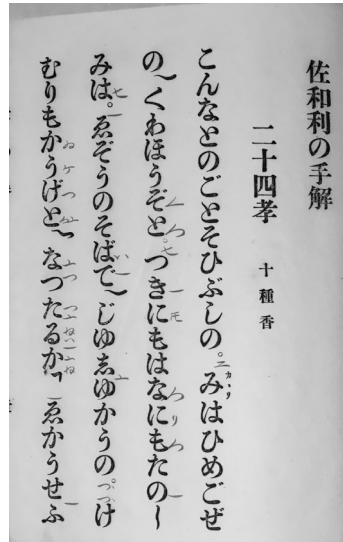 佐和利の手解
二十四孝 十種香
こんなとのごとそひぶしの。みはひめごぜ
の〽くわほうぞと。つきにもはなにもたの〳〵
みは。ゑぞうのそばで〽じゆゑゆかうの。け
むりもかうげと〽なつたるか〽ゑかうせふ